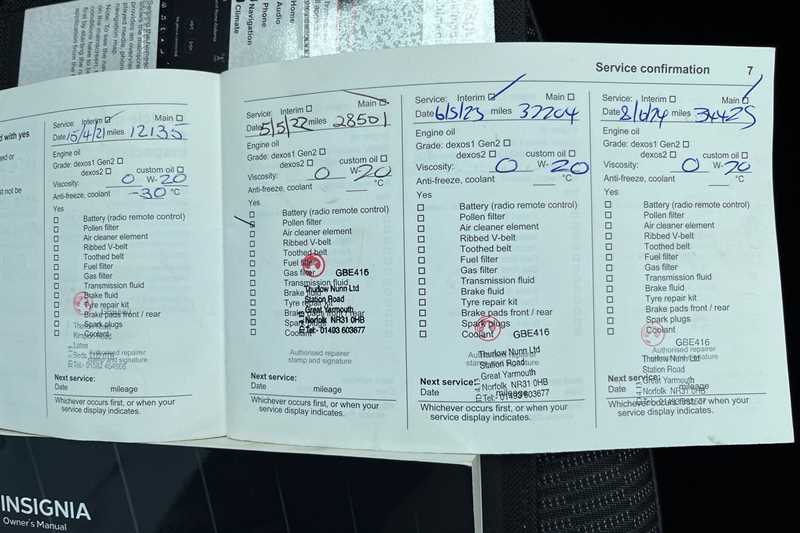 Home
Audio
Phone
Navigation
Climate
Service confirmation 7
Service: Interim Main
Date 15/4/21 miles 12135
Engine oil
Grade: dexos1 Gen2
dexos2 custom oil
Viscosity: 0 W-20
Anti-freeze, coolant -30 °C
Yes
Battery (radio remote control)
Pollen filter
Air cleaner element
Ribbed V-belt
Toothed belt
Fuel filter
Gas filter
Transmission fluid
Brake fluid
Tyre repair kit
Brake pads front / rear
Spark plugs
Coolant
Authorised repairer
stamp and signature
Next service:
Date mileage
Whichever occurs first, or when your
service display indicates.
Service: Interim Main
Date 5/5/22 miles 28501
Engine oil
Grade: dexos1 Gen2
dexos2 custom oil
Viscosity: 0 W-20
Anti-freeze, coolant °C
Yes
Battery (radio remote control)
Pollen filter
Air cleaner element
Ribbed V-belt
Toothed belt
Fuel filter
Gas filter GBE416
Transmission fluid
Brake fluid
Thurlow Nunn Ltd
Tyre repair kit
Station Road
Brake pads front / rear
Great Yarmouth
Spark plugs
Norfolk NR31 0HB
Coolant
Tel:- 01493 603677
Authorised repairer
stamp and signature
Next service:
Date mileage
Whichever occurs first, or when your
service display indicates.
Service: Interim Main
Date 6/5/23 miles 32204
Engine oil
Grade: dexos1 Gen2
dexos2 custom oil
Viscosity: 0 W-20
Anti-freeze, coolant °C
Yes
Battery (radio remote control)
Pollen filter
Air cleaner element
Ribbed V-belt
Toothed belt
Fuel filter
Gas filter
Transmission fluid
Brake fluid
Tyre repair kit
Brake pads front / rear
Spark plugs
Coolant GBE416
Authorised repairer
stamp and signature
Thurlow Nunn Ltd
Station Road
Great Yarmouth
Norfolk NR31 0HB
Tel:- 01493 603677
Next service:
Date mileage
Whichever occurs first, or when your
service display indicates.
Service: Interim Main
Date 8/6/24 miles 34425
Engine oil
Grade: dexos1 Gen2
dexos2 custom oil
Viscosity: 0 W-20
Anti-freeze, coolant °C
Yes
Battery (radio remote control)
Pollen filter
Air cleaner element
Ribbed V-belt
Toothed belt
Fuel filter
Gas filter
Transmission fluid
Brake fluid
Tyre repair kit
Brake pads front / rear
Spark plugs
Coolant
GBE416
Authorised repairer
stamp and signature
Thurlow Nunn Ltd
Station Road
Great Yarmouth
Norfolk NR31 0HB
Next service:
Date mileage
Whichever occurs first, or when your
service display indicates.
INSIGNIA
Owner's Manual